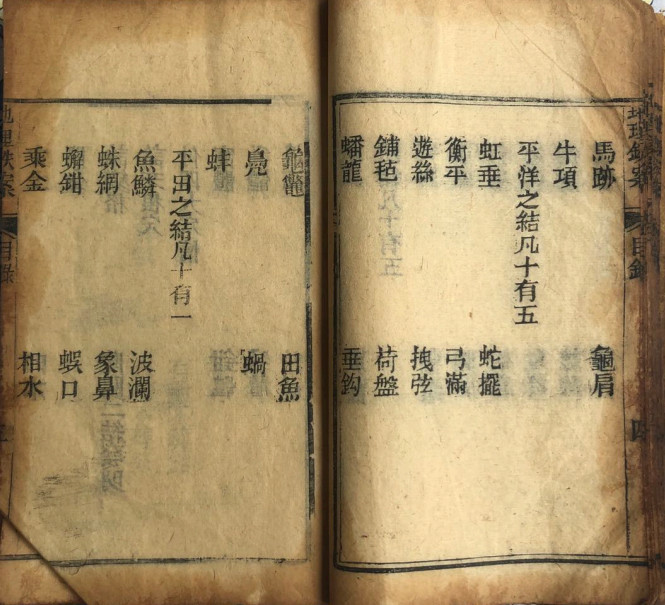 地理鉄案
目錄
四
馬跡
龜肩
牛項
平洋之結凡十有五
虹垂
蛇擺
衡平
弓滿
遊絲
拽弦
鋪毡
荷盤
蟠龍
垂鈎
龜鼊
田魚
鳧
蝸
蚌
平田之結凡十有一
魚鱗
波瀾
蛛網
象鼻
蠏鉗
蜈口
乘金
相水
地理
案
目錄